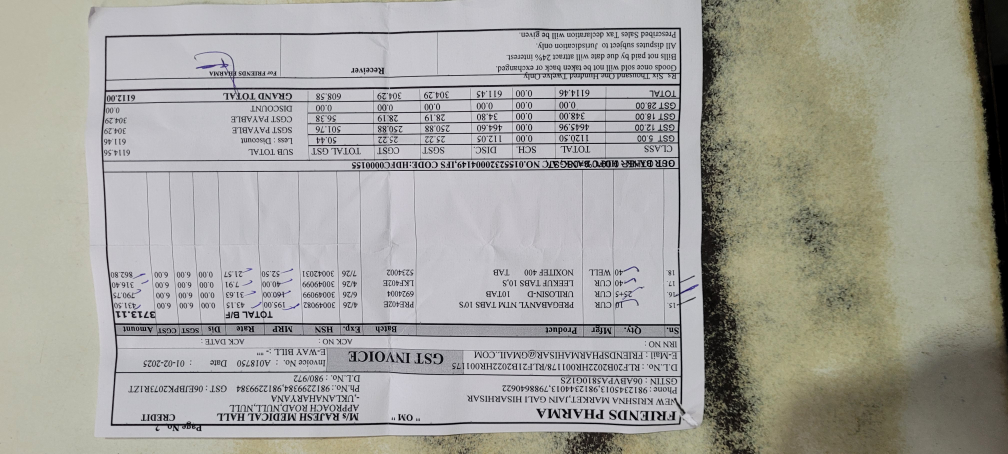 Page No 2
FRIENDS PHARMA " OM " M/s RAJESH MEDICAL HALL CREDIT
NEW KRISHNA MARKET,JAIN GALI HISARHISAR APPROACH ROAD,NULL,NULL
Phone: 9812345013,9812344013,7988640622 -,UKLANAHARYANA
GSTIN : 06AVBPA5810G1ZS Ph.No.: 9812299384,9812299384 GST : 06EJBPK2073R1ZT
D.L.No. : 980/972
D.L.No : RLF20B2022HR001178/RLF21B2022HR001175 GST INVOICE Invoice No. : A018750 Date : 01-02-2025
E-Mail : FRIENDSPHARMAHISAR@GMAIL.COM E-WAY BILL :- ""
IRN NO : ACK NO : ACK DATE :
Sn. Qty. Mfgr Product Batch Exp. HSN MRP Rate Dis SGST CGST Amount
TOTAL B/F 3713.11
15. 10 CUR PREGABANYL NT NEW TABS 10'S PBFA02E 4/26 30049082 199.00 43.15 0.00 6.00 6.00 431.50
16. 25+5 CUR URILOSIN-D 10TAB 6924004 6/26 30049099 160.00 31.63 0.00 6.00 6.00 790.75
17. 40 CUR LEEKUF TABS 10,S LKF402E 4/26 30049099 40.00 7.91 0.00 6.00 6.00 316.40
18 40 WELL NOXITEF 400 TAB 5234002 7/26 30042031 52.50 21.57 0.00 6.00 6.00 862.80
NO.01552320004149,IFS CODE:HDFC0000155
CLASS TOTAL SCH. DISC. SGST CGST TOTAL GST SUB TOTAL 6114.56
GST 5.00 1120.50 0.00 112.05 25.22 25.22 50.44 Less : Discount 611.46
GST 12.00 4645.96 0.00 464.60 250.88 250.88 501.76 SGST PAYABLE 304.29
GST 18.00 348.00 0.00 34.80 28.19 28.19 56.38 CGST PAYABLE 304.29
GST 28.00 0.00 0.00 0.00 0.00 0.00 0.00 DISCOUNT 0.00
TOTAL 6114.46 0.00 611.45 304.29 304.29 608.58 GRAND TOTAL 6112.00
Rs. Six Thousand One Hundred Twelve Only
Goods once sold will not be taken back or exchanged.
Bills not paid by due date will attract 24% interest.
All disputes subject to Jurisdication only.
Prescribed Sales Tax declaration will be given.
Receiver For FRIENDS PHARMA